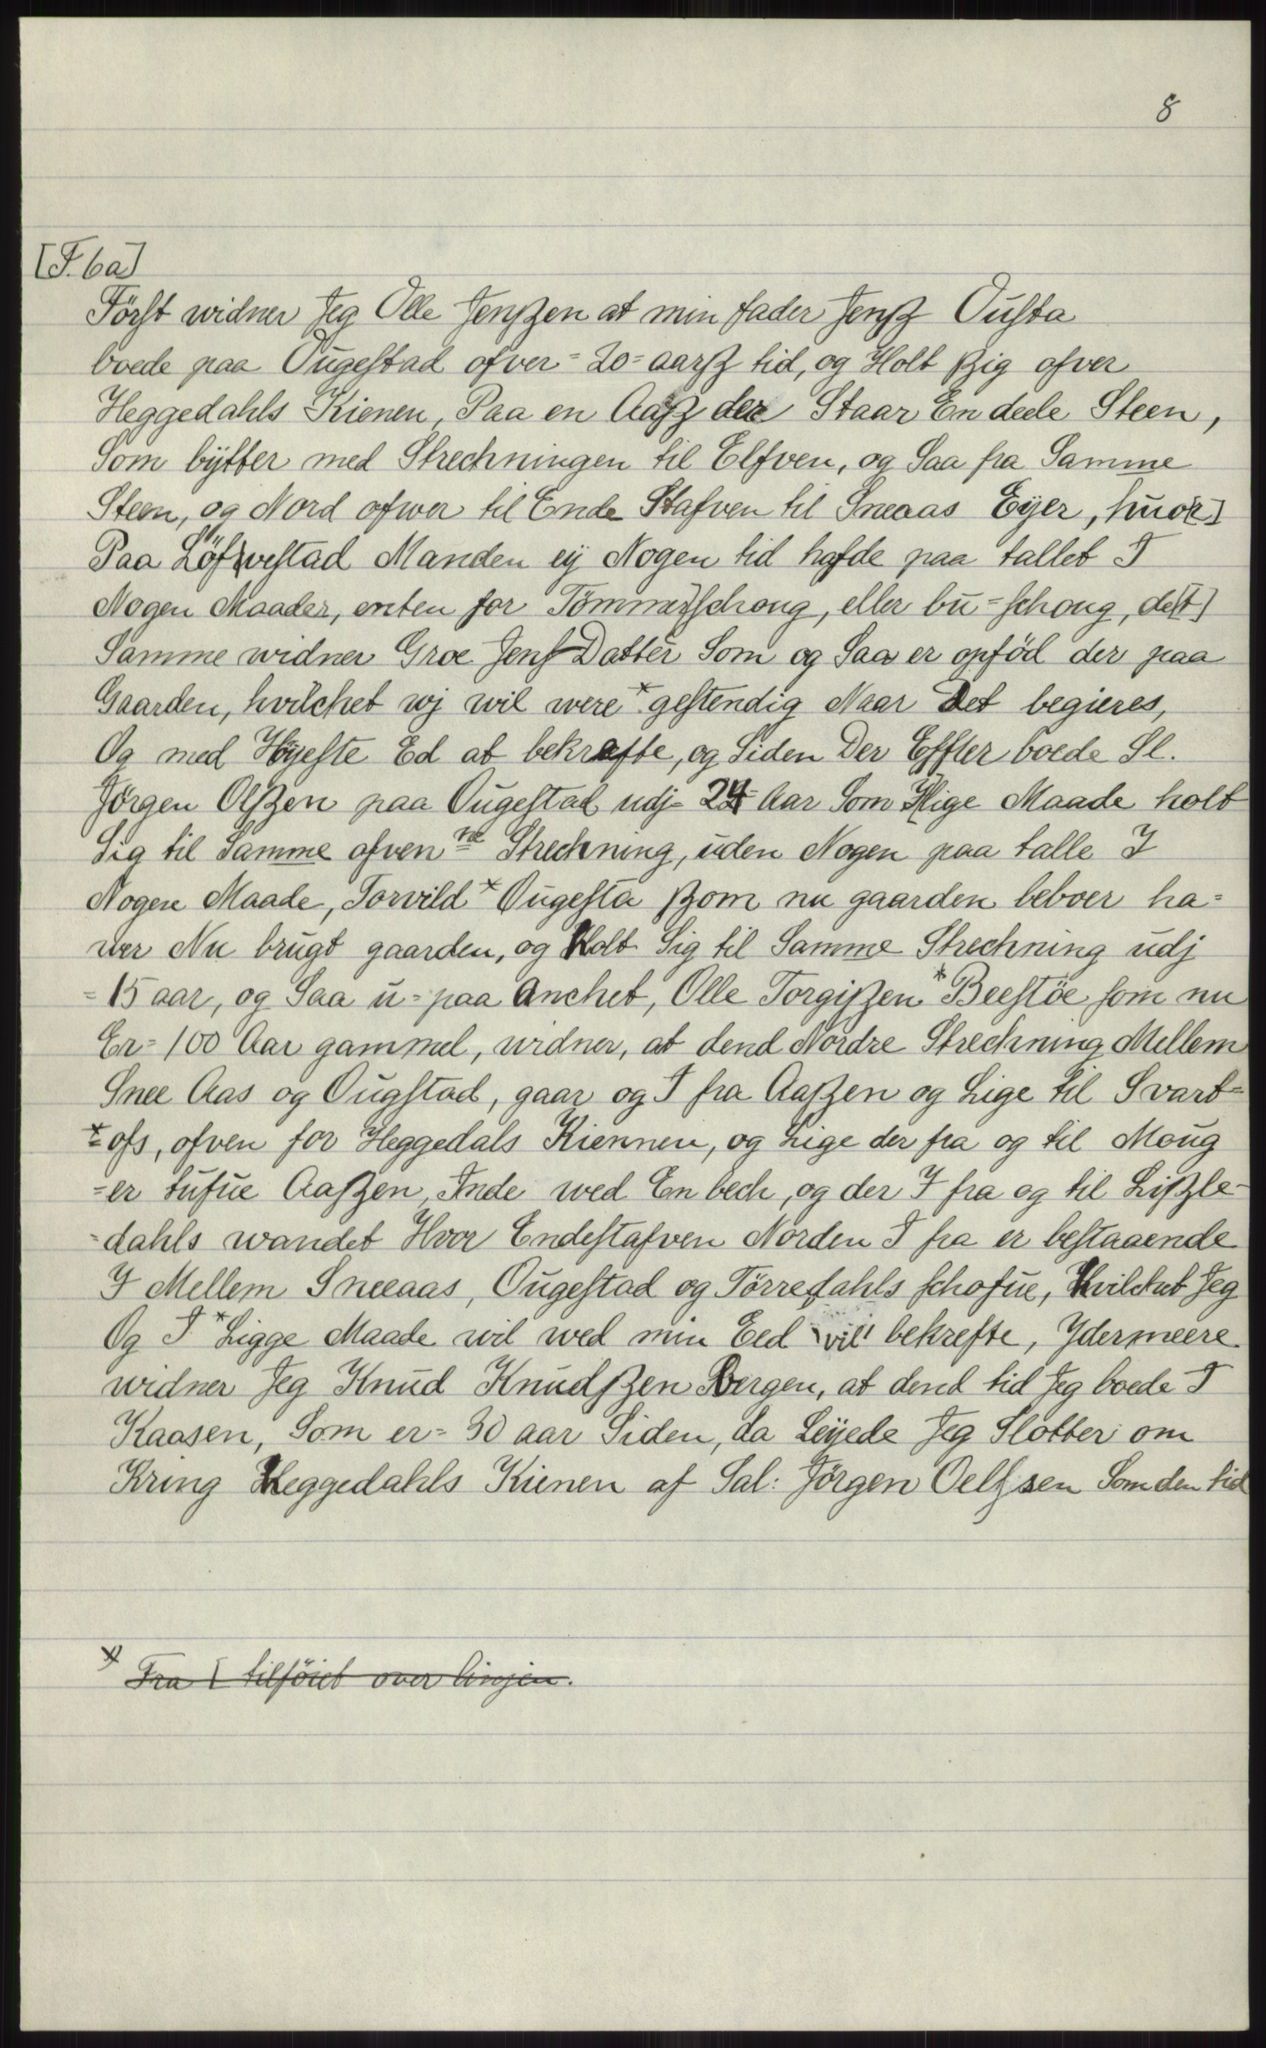 8
[F. 6a]
Först widner Jeg Olle Jenßen at min fader Jenß Ousta
boede paa Ougestad ofver = 20 = aarß tid, og Holt ßig ofver
Heggedahls Kienen, Paa en Aaß der Staar En deele Steen,
Som bÿtter med Strechningen til Elfven, og Saa fra Samme
Steen, og Nord ofwer til Ende Stafven til Sneaas Eÿer, huor]
Paa Löfvestad Manden eÿ Nogen tid hafde paa tallet I
Nogen Maader, enten for Tömmerschoug, eller bu=schoug, det]
Samme widner Groe Jens Datter Som og Saa er opföd der paa
Gaarden, hvilchet wj wil were * gestendig Naar Det begieres,
Og med Höyeste Ed at bekrafte, og Siden Der Effter boede Sl.
Jörgen Olßen paa Ougestad udj = 24 = Aar Som I lige Maade holt
Sig til Samme ofven ne Strechning, uden Nogen paa talle I
Nogen Maade, Torvild * Ougesta ßom nu gaarden beboer ha=
wer Nu brugt gaarden, og Holt Sig til Samme Strechning udj
= 15 aar, og Saa u=paa Anchet, Olle Torgißen * Beestöe som nu
Er = 100 Aar gammel, widner, at dend Nordre Strechning Mellem
Snee Aas og Ougstad, gaar og I fra Aaßen og Lige til Svart=
*=ofs, ofven for Heggedals Kiennen, og Lige der fra og til Moug
=er tufue Aaßen, Inde wed En bech, og der I fra og til Lißle=
=dahls wandet Hvor Endestafven Norden I fra er bestaaende
I Mellem Sneeaas, Ougestad og Törredahls schofue, Hvilchet Jeg
Og I * Ligge Maade wil wed min Eed vil bekrefte, Ydermeere
widner Jeg Knud Knudßen Bergen, at dend tid Jeg boede I
Kaasen, Som er = 30 aar Siden, da Leÿede Jeg Slotter om
Kring Heggedahls Kienen af Sal: Jörgen Oelssen Som den tid
* Fra [ tilföiet over linjen.